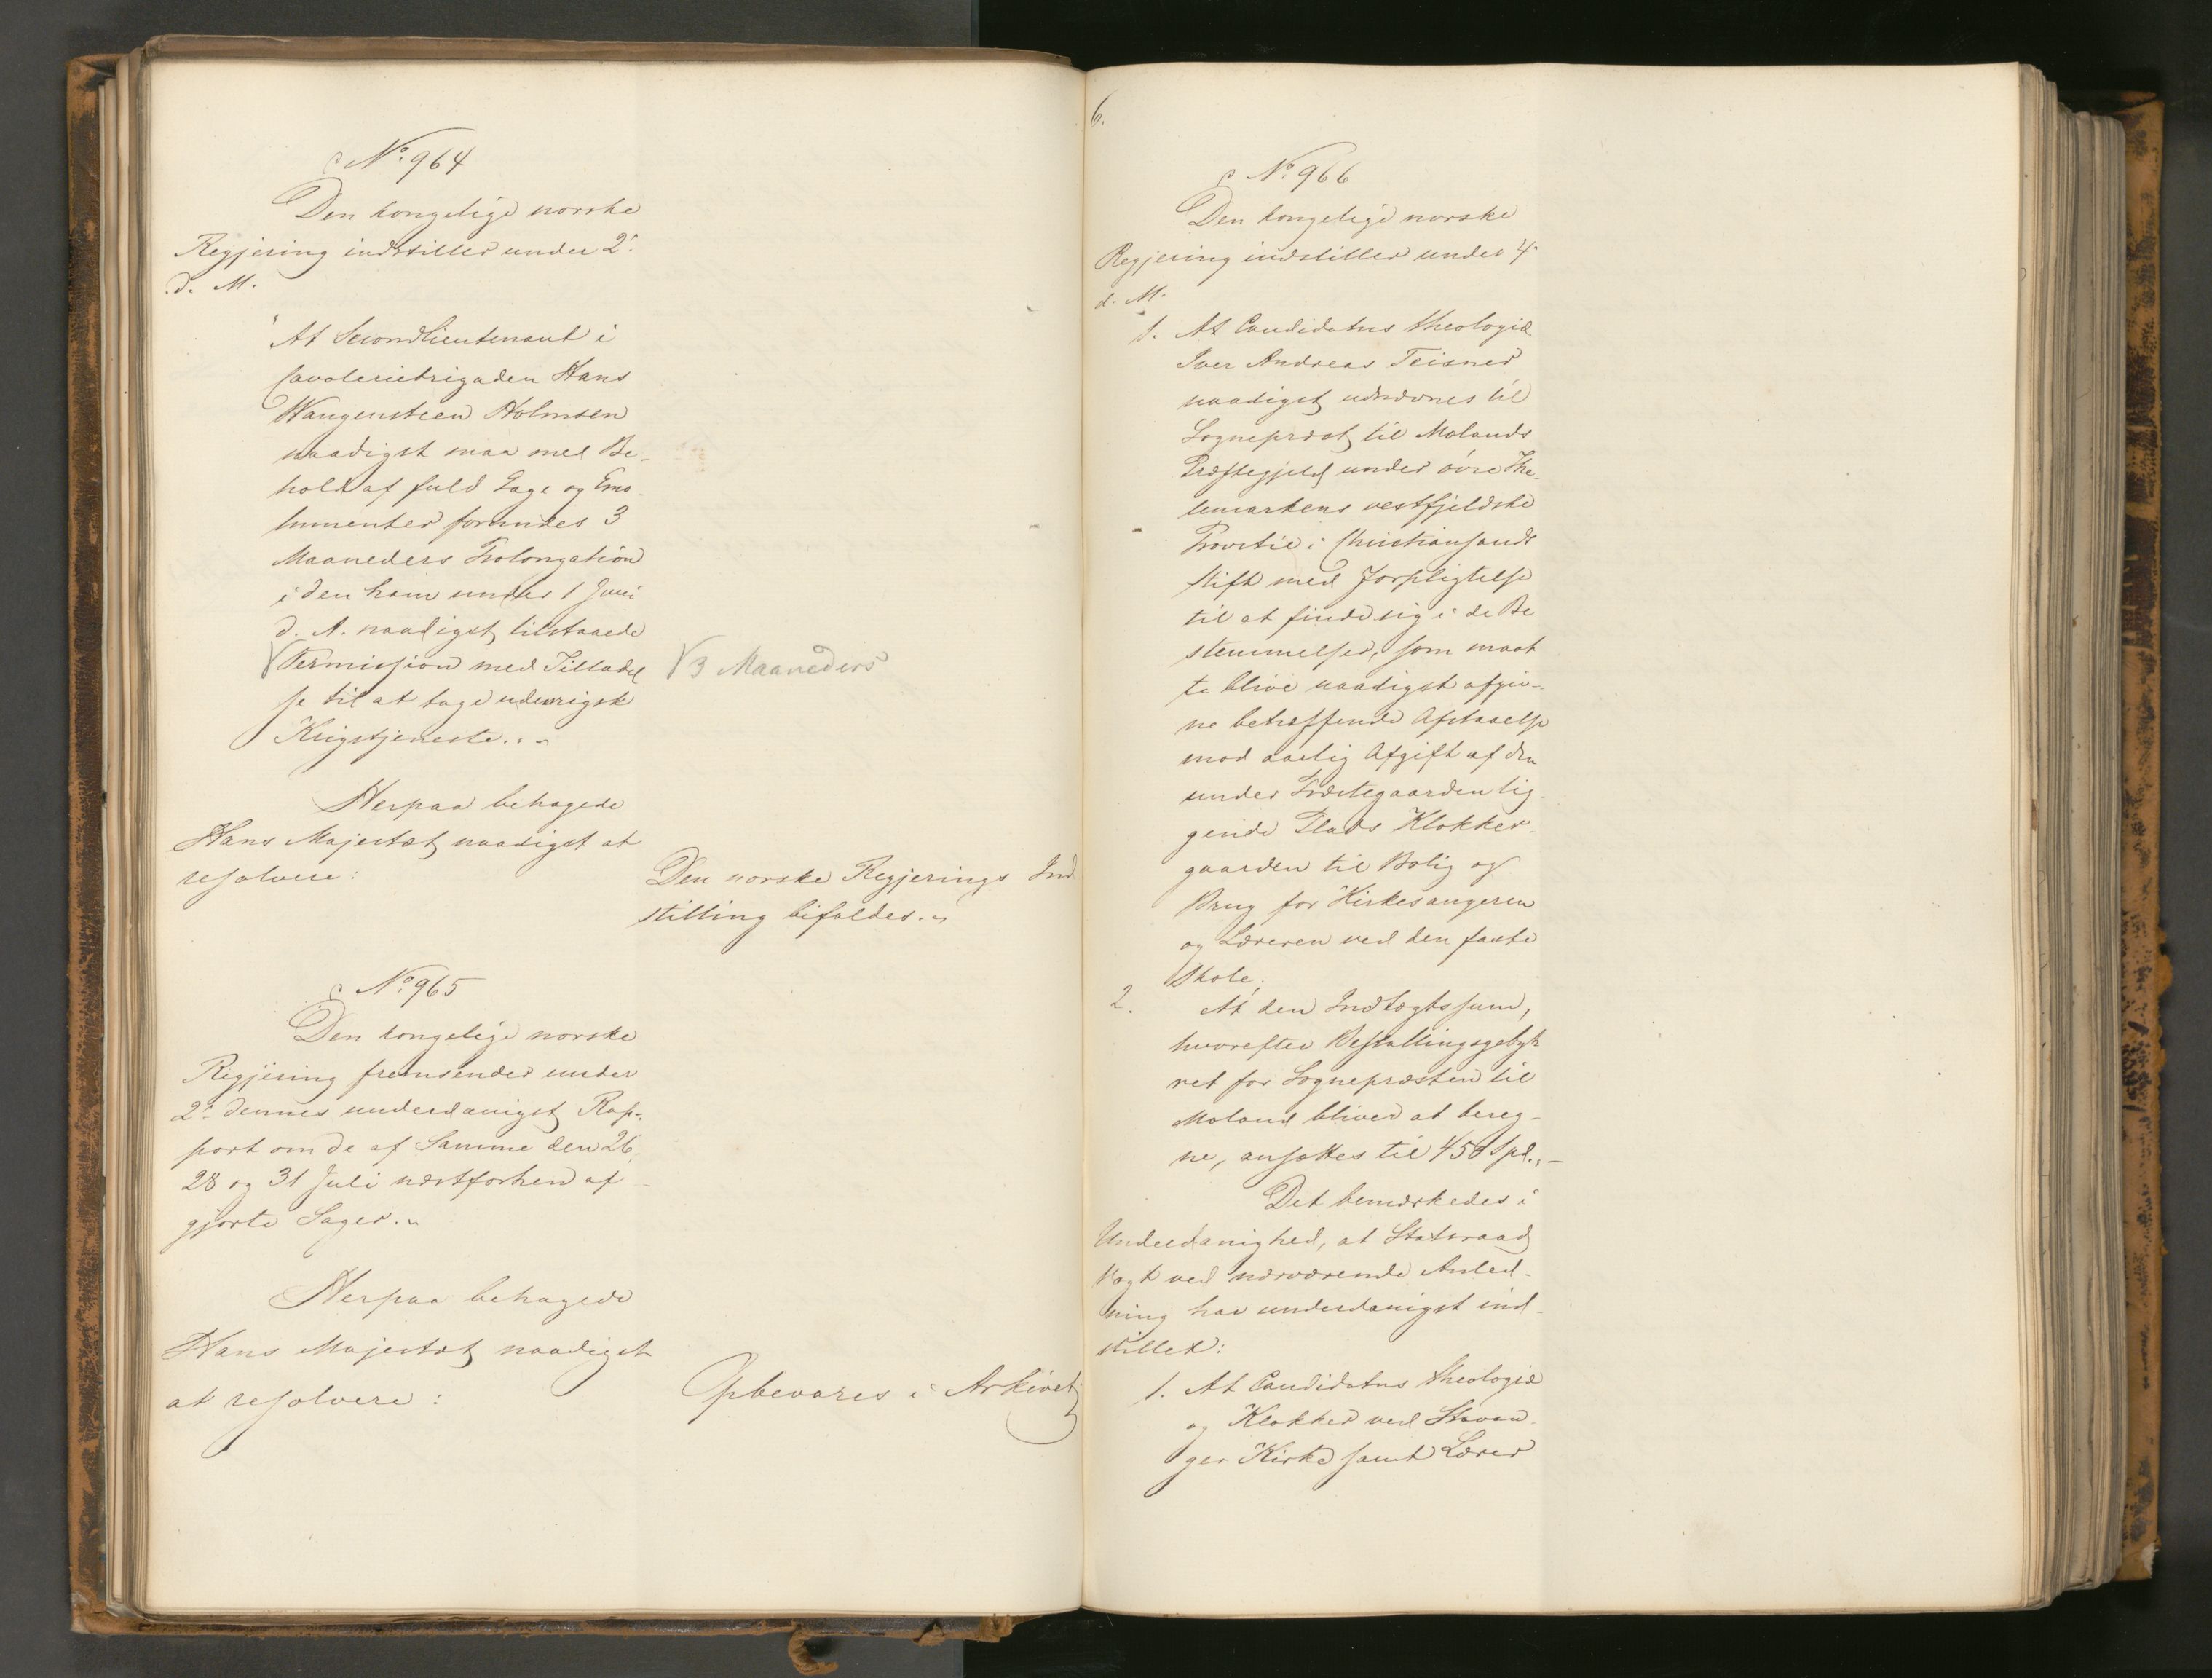 No. 964
Den kongelige norske
Regjering indstiller under 2.
d. M.
"At Secondlieutenant i
Cavaleribrigaden Hans
Wangensteen Holmsen
naadigst maa med Be-
hold af fuld Gage og Emo-
lumenter forundes 3
Maaneders Prolongation
i den ham under 1 Juni
d. A. naadigst tilstaaede
√ Permission med Tilladel
se til at tage udenrigsk
Krigstjeneste."
√ 3 Maaneders
Herpaa behagede
Hans Majestæt naadigst at
resolvere:
Den norske Regjerings Ind
stilling bifaldes."
No. 965
Den kongelige norske
Regjering fremsender under
2. dennes underdanigst Rap-
port om de af Samme den 26,
28 og 31 Juli næstforhen af-
gjorte Sager."
Herpaa behagede
Hans Majestæt naadigst
at resolvere:
Opbevares i Arkivet
6.
No. 966
Den kongelige norske
Regjering indstiller under 4.
d. M.
1. At Candidatus theologiæ
Iver Andreas Teisner
naadigst udnævnes til
Sognepræst til Molands
Præstegjeld under øvre The-
lemarkens vestfjeldske
Provsti i Christiansands
Stift med Forpligtelse
til at finde sig i de Be
stemmelser, som maat
te blive naadigst afgiv-
ne betræffende Afstaaelse
mod aarlig Afgift af den
under Præstegaarden lig-
gende Plads Klokker-
gaarden til Bolig og
Brug for Kirkesangeren
og Læreren ved den faste
Skole;
2. At den Indtægtssum,
hvorefter Bestallingsgeby
ret for Sognepræsten til
Moland bliver at bereg-
ne, ansættes til 450 Spd."-
Det bemærkedes i
Underdanighed, at Statsraad
Vogt ved nærværende Anled-
ning har underdanigst ind-
stillet:
1. At Candidatus theologiæ
og Klokker ved Stavan-
ger Kirke samt Lærer